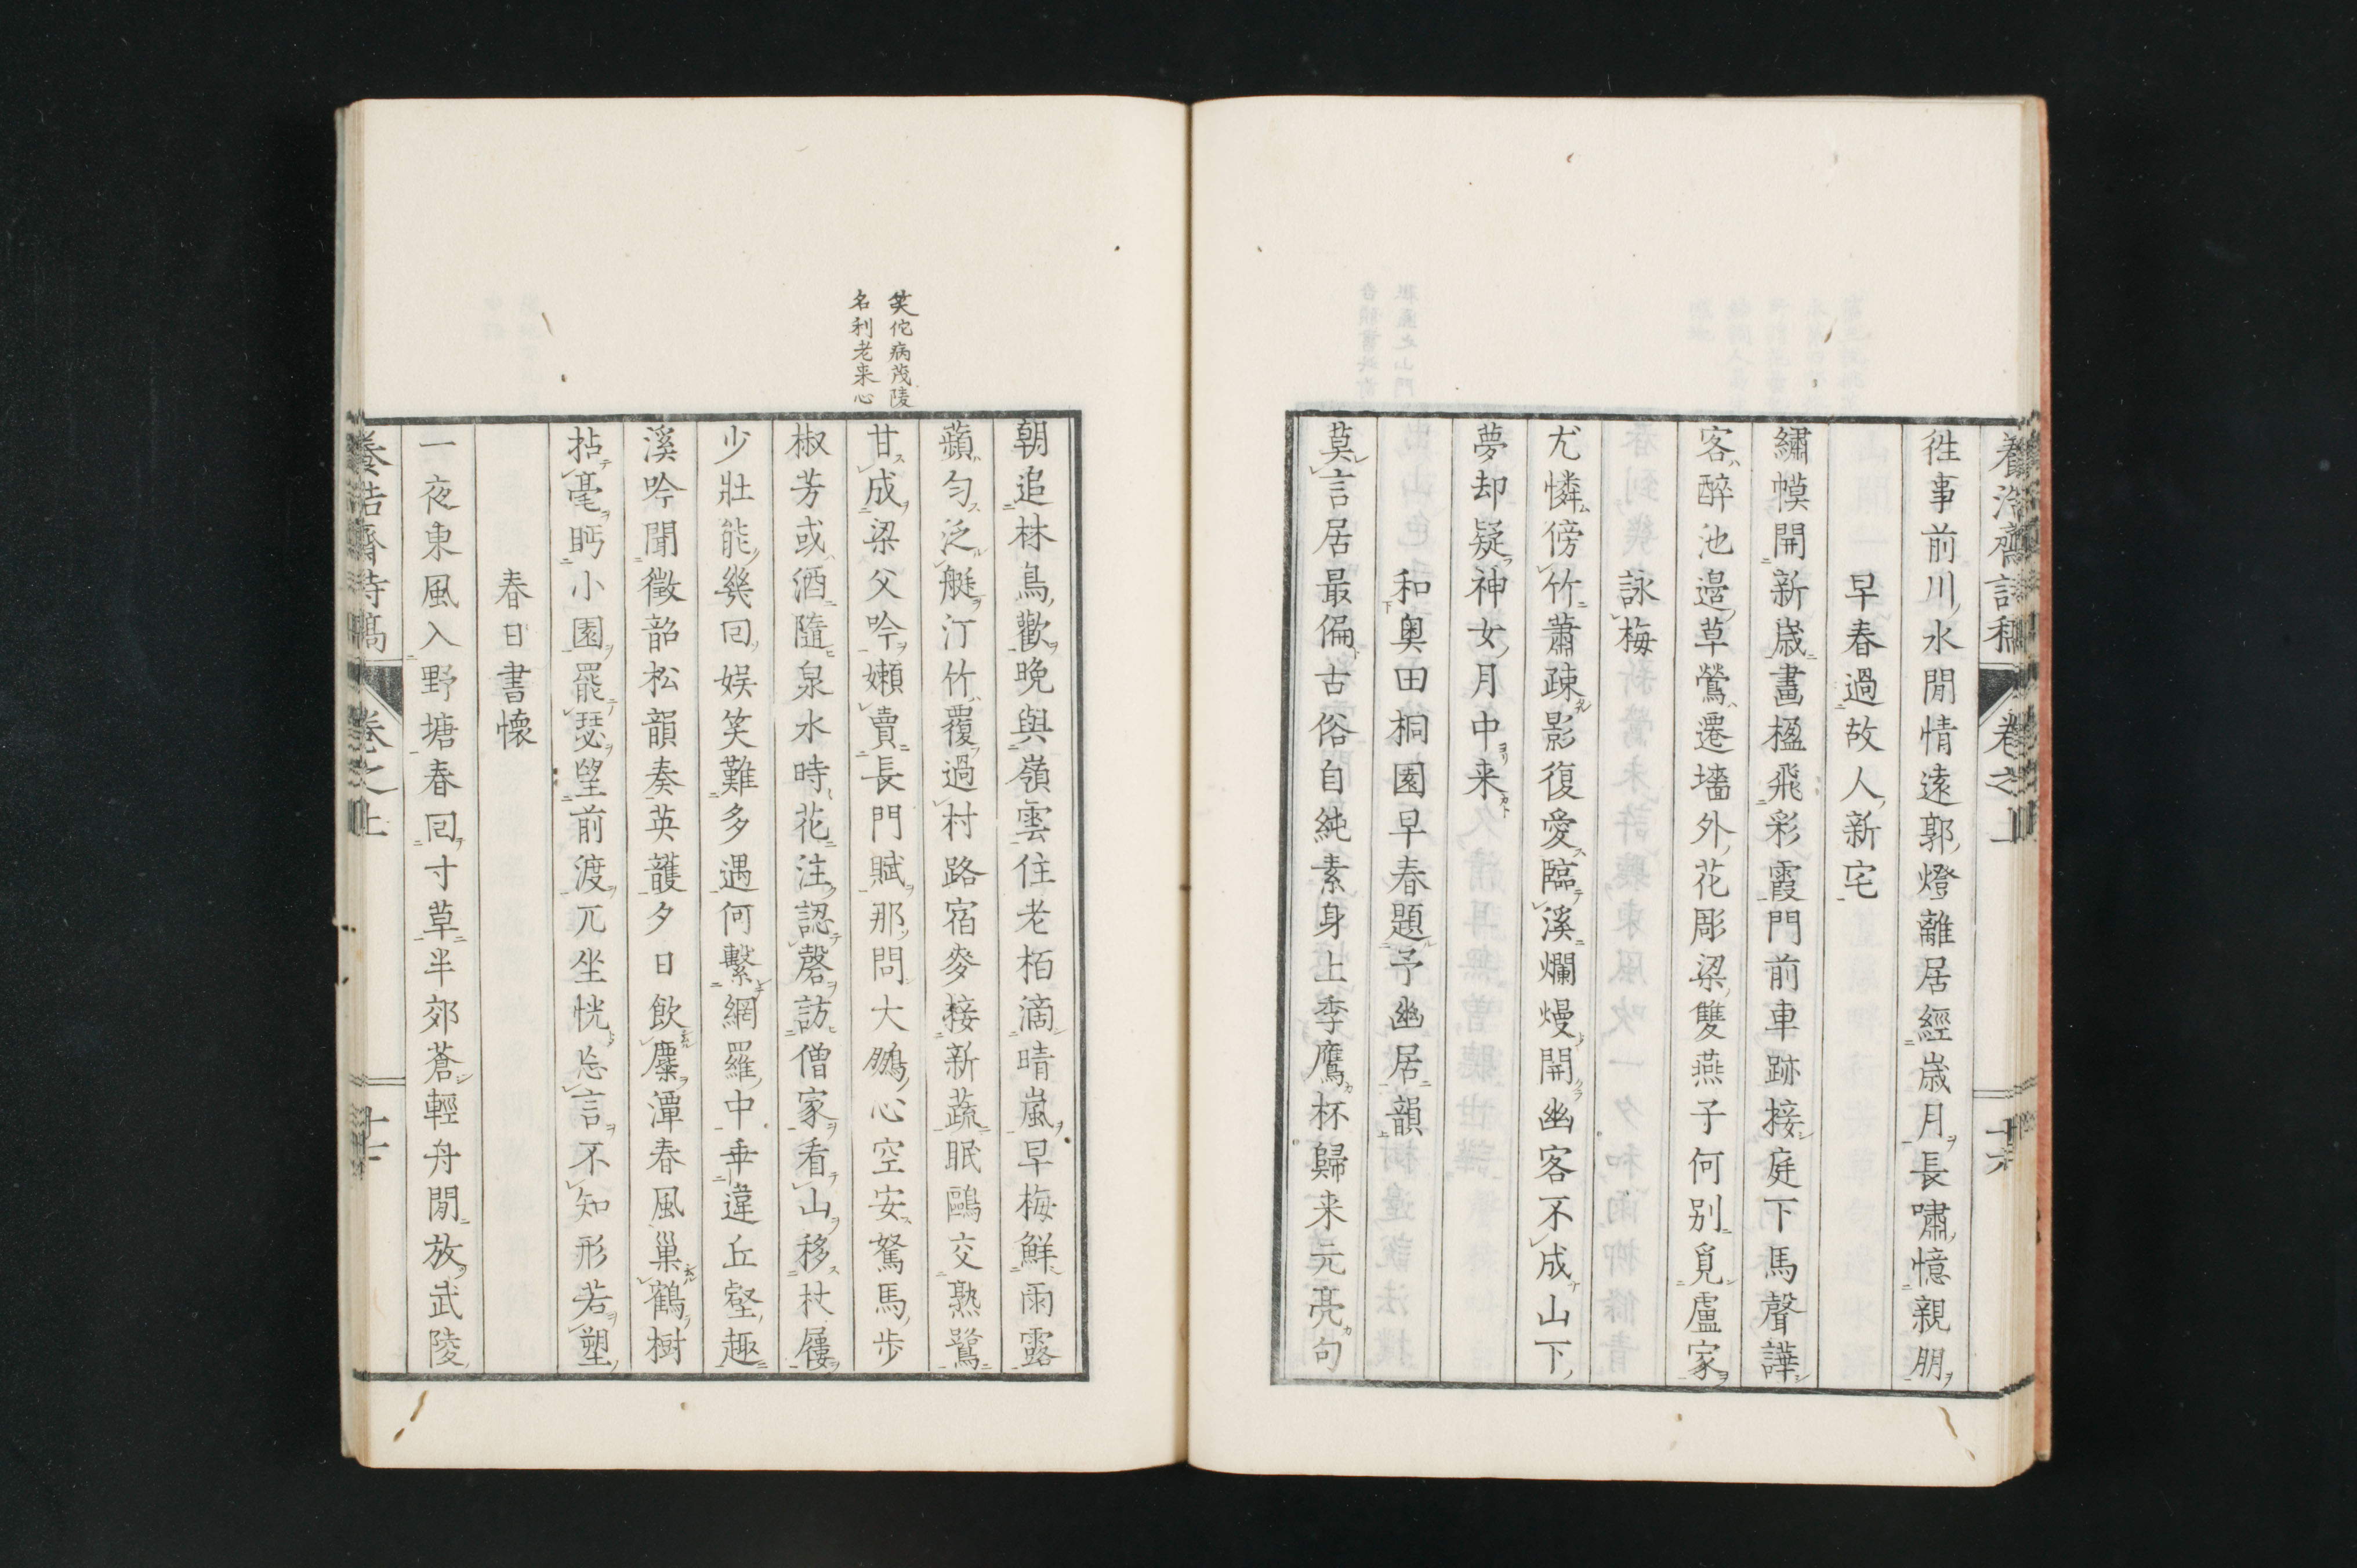 徃事前川水閒情遠郭燈離居經歳月長嘯憶親朋
早春過故人新宅
繡幙開新歳畵楹飛彩霞門前車跡接庭下馬聲譁
客醉池邉草鶯遷墻外花彫梁雙燕子何別覓盧家
詠梅
尤憐傍竹蕭疎影復愛臨溪爛熳開幽客不成山下
夢却疑神女月中来
和奥田桐園早春題予幽居韻
莫言居最偏古俗自純素身上季鷹杯歸来元亮句
朝追林鳥歡晩與嶺雲住老栢滴晴嵐早梅鮮雨露
蘋匀泛艇汀竹覆過村路宿麥接新蔬眠鷗交熟鷺
笑佗病茂陵
名利老来心
甘成梁父吟嬾賣長門賦那問大鵬心空安駑馬歩
椒芳或酒隨泉水時花注認磬訪僧家看山移杖屨
少壯能幾回娯笑難多遇何繫網羅中乖違丘壑趣
溪吟聞徵韶松韻奏英頀夕日飲麋潭春風巢鶴樹
拈毫眄小園罷瑟望前渡兀坐恍忘言不知形若塑
春日書懷
一夜東風入野塘春回寸草半郊蒼輕舟閒放武陵
養浩齋詩稿 卷之上